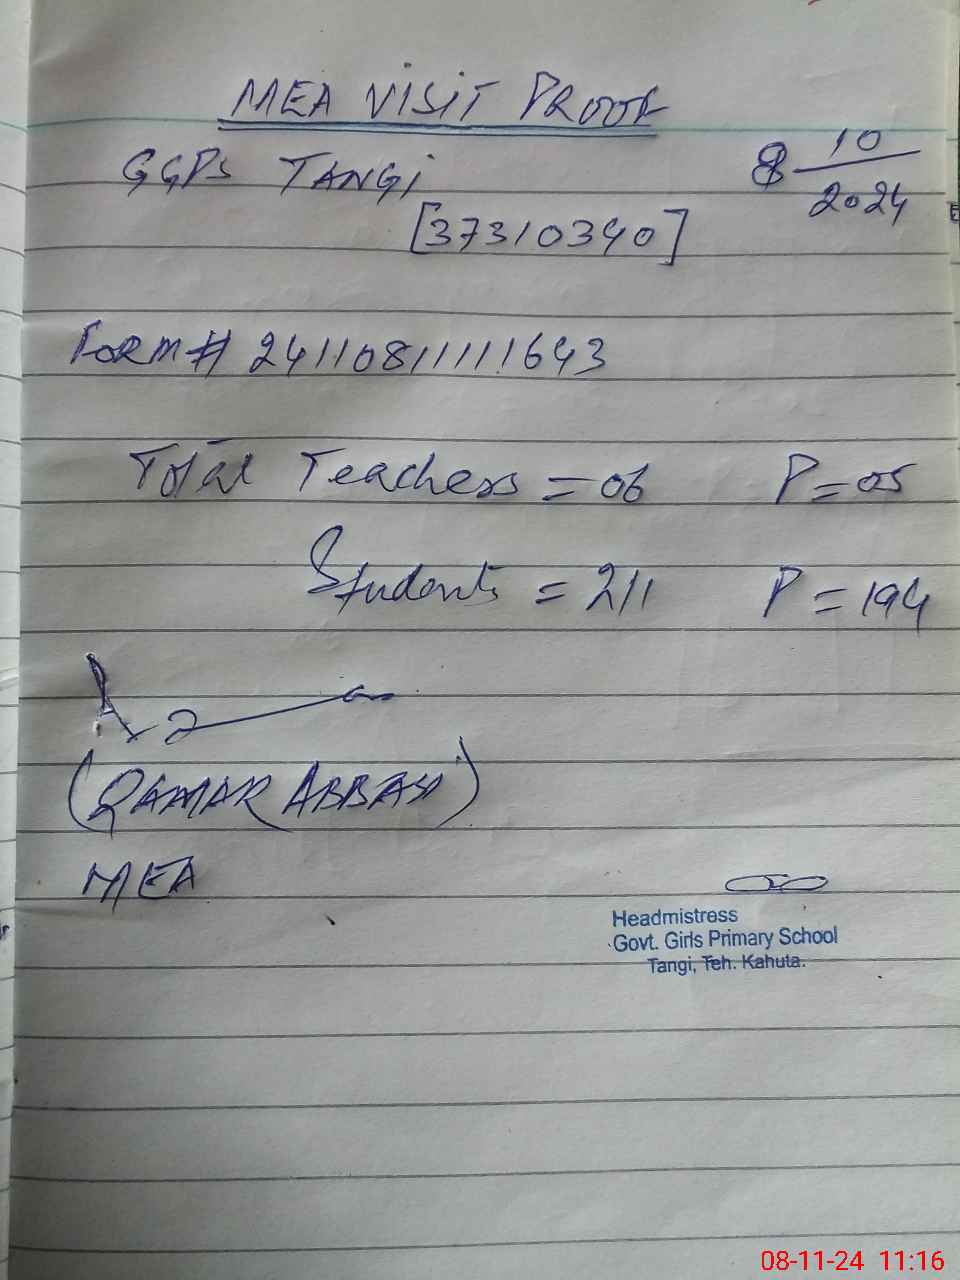 MEA VISIT PROOF
GGPS TANGI
8 10/2024
[37310340]
FORM# 24110811111643
Total Teachers = 06 P=05
Students = 211 P=194
(QAMAR ABBASI)
MEA
Headmistress
Govt. Girls Primary School
Tangi, Teh. Kahuta.
08-11-24 11:16